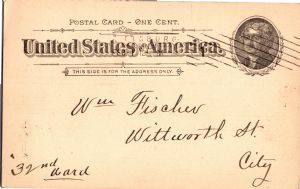 POSTAL CARD - ONE CENT.
United States of America.
THIS SIDE IS FOR THE ADDRESS ONLY.
Wm Fischer
Wittworth St.
City
32nd Ward